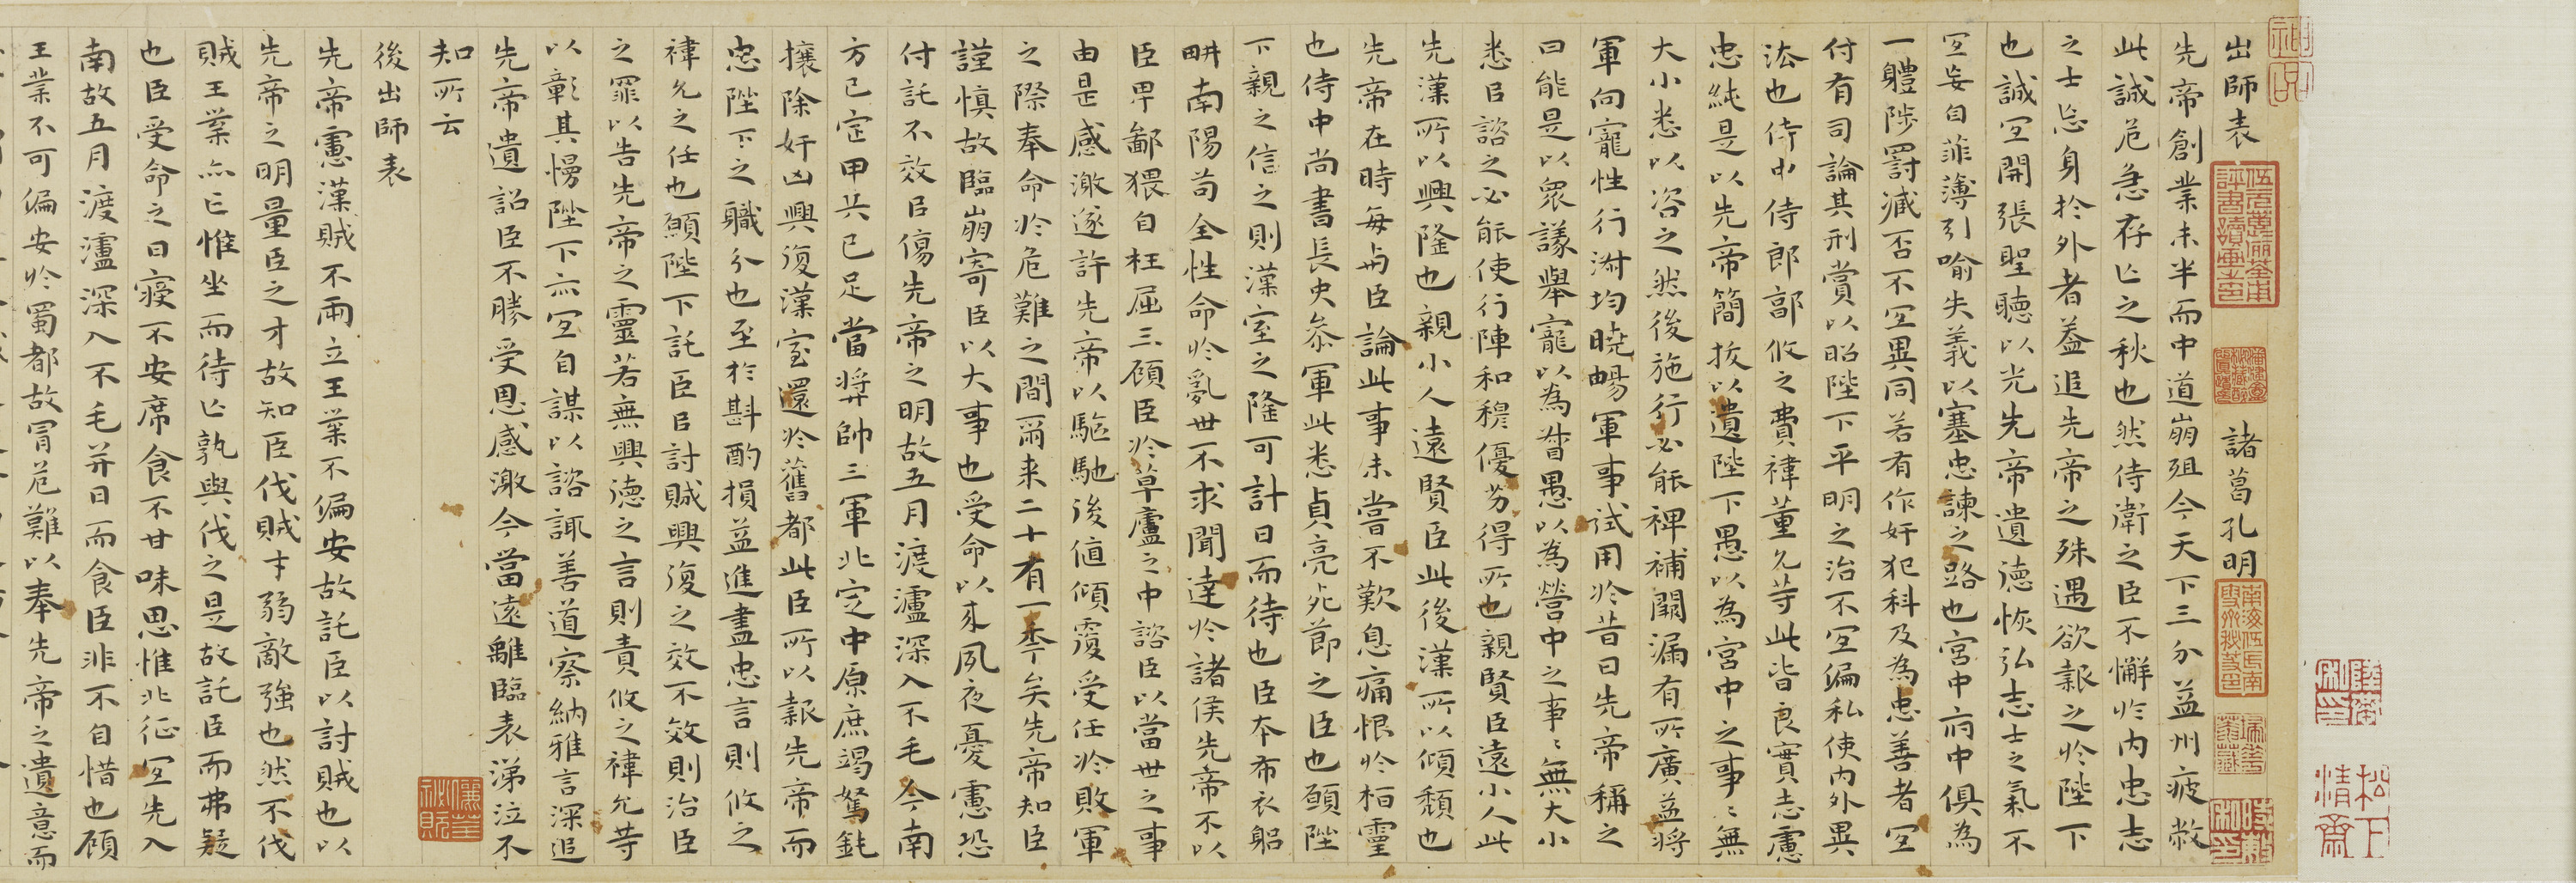 出師表 諸葛孔明
先帝創業未半而中道崩殂今天下三分益州疲敝
此誠危急存亡之秋也然侍衛之臣不懈於內忠志
之士忘身於外者葢追先帝之殊遇欲報之於陛下
也誠宜開張聖聽以光先帝遺德恢弘志士之氣不
宜妄自菲薄引喻失義以塞忠諫之路也宮中府中俱為
一體陟罰臧否不宜異同若有作奸犯科及為忠善者宜
付有司論其刑賞以昭陛下平明之治不宜偏私使內外異
法也侍中侍郎郭攸之費禕董允等此皆良實志慮
忠純是以先帝簡拔以遺陛下愚以為宮中之事〻無
大小悉以咨之然後施行必能裨補闕漏有所廣益將
軍向寵性行淑均曉暢軍事試用於昔日先帝稱之
曰能是以眾議舉寵以為督愚以為營中之事〻無大小
悉以諮之必能使行陣和穆優劣得所也親賢臣遠小人此
先漢所以興隆也親小人遠賢臣此後漢所以傾頹也
先帝在時每與臣論此事未嘗不歎息痛恨於桓靈
也侍中尚書長史叅軍此悉貞亮死節之臣也願陛
下親之信之則漢室之隆可計日而待也臣本布衣躬
畊南陽苟全性命於亂世不求聞達於諸侯先帝不以
臣卑鄙猥自枉屈三顧臣於草廬之中諮臣以當世之事
由是感激遂許先帝以驅馳後值傾覆受任於敗軍
之際奉命於危難之間爾来二十有一年矣先帝知臣
謹慎故臨崩寄臣以大事也受命以來夙夜憂慮恐
付託不效以傷先帝之明故五月渡瀘深入不毛今南
方已定甲兵已足當將帥三軍北定中原庶竭駑鈍
攘除奸凶興復漢室還於舊都此臣所以報先帝而
忠陛下之職分也至於斟酌損益進盡忠言則攸之
禕允之任也願陛下託臣以討賊興復之效不效則治臣
之罪以告先帝之靈若無興德之言則責攸之禕允等
以彰其慢陛下亦宜自謀以諮諏善道察納雅言深追
先帝遺詔臣不勝受恩感激今當遠離臨表涕泣不
知所云
後出師表
先帝慮漢賊不兩立王業不偏安故託臣以討賊也以
先帝之明量臣之才故知臣伐賊才弱敵強也然不伐
賊王業亦亡惟坐而待亡孰與伐之是故託臣而弗疑
也臣受命之日寢不安席食不甘味思惟北征宜先入
南故五月渡瀘深入不毛并日而食臣非不自惜也顧
王業不可偏安於蜀都故冒危難以奉先帝之遺意而